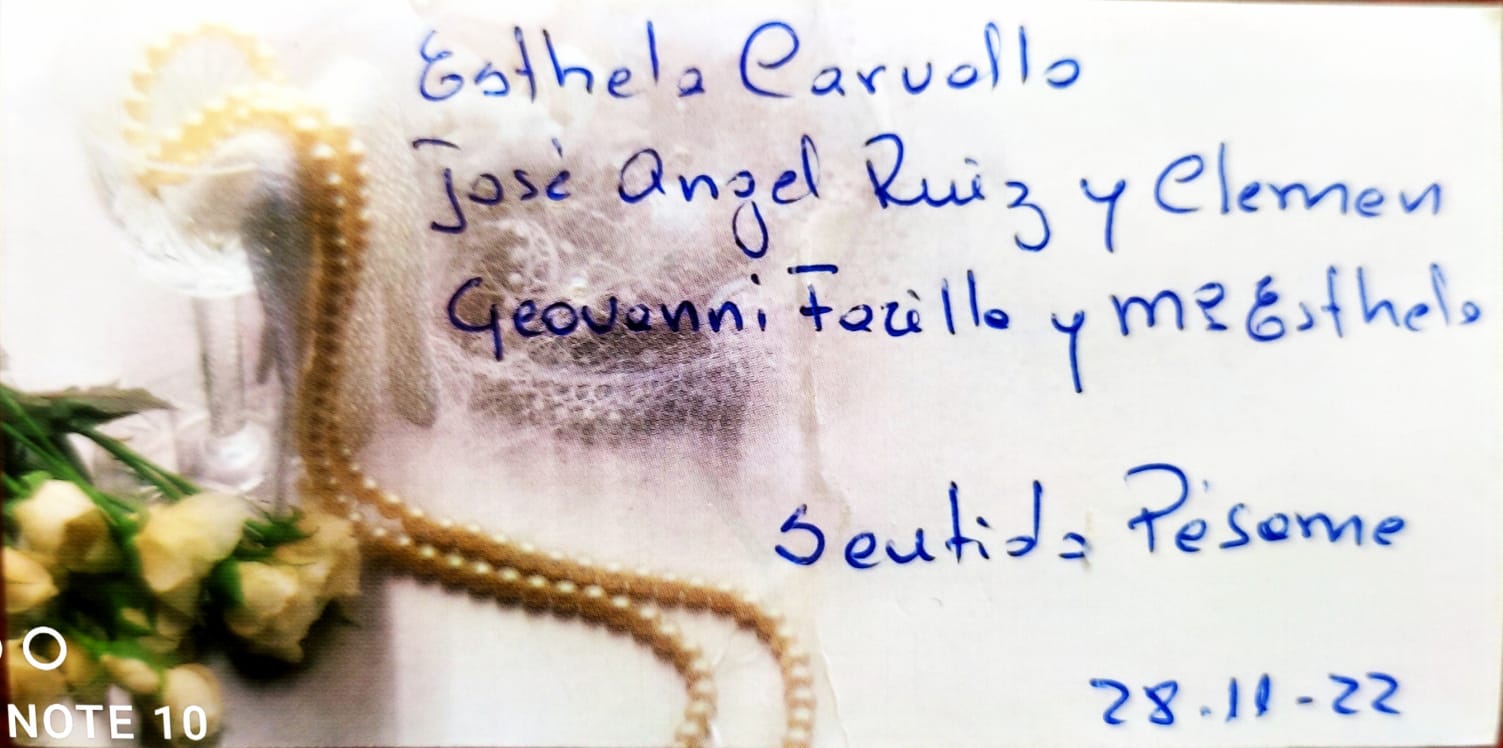 Esthela Carvallo
José Angel Ruiz y Clemen
Geovanni Farillo y Mª Esthela
Sentida Pésame
28.11-22
NOTE 10